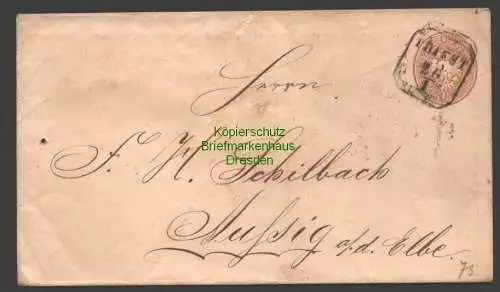 TRIEST
Herrn
Kopierschutz
Briefmarkenhaus
Dresden
F. H. Schilbach
Aussig a/d. Elbe.
75